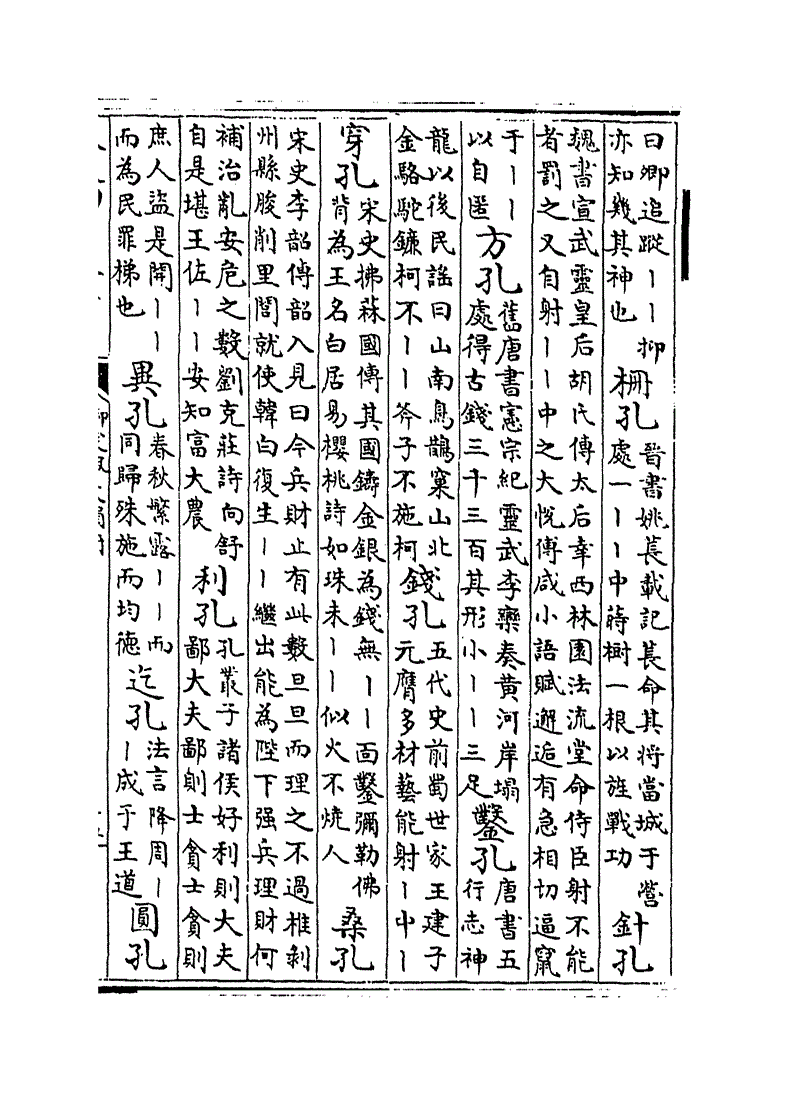 曰卿追蹤丨丨抑
亦知幾其神也
柵孔
晉書姚萇載記萇命其將當城于營
處一丨丨中蒔樹一根以旌戰功
針孔
魏書宣武靈皇后胡氏傳太后幸西林園法流堂命侍臣射不能
者罰之又自射丨丨中之大悦傅咸小語賦邂逅有急相切逼竄
于丨丨
以自匿
方孔
舊唐書憲宗紀靈武李欒奏黄河岸塌
處得古錢三千三百其形小丨丨三足
鑿孔
唐書五
行志神
龍以後民謡曰山南烏鵲窠山北
金駱駝鐮柯不丨丨斧子不施柯
錢孔
五代史前蜀世家王建子
元膺多材藝能射丨中丨
穿孔
宋史拂菻國傳其國鑄金銀為錢無丨丨面鑿彌勒佛
背為王名白居易櫻桃詩如珠未丨丨似火不燒人
桑孔
宋史李韶傳韶入見曰今兵財止有此數旦旦而理之不過椎剥
州縣朘削里閭就使韓白復生丨丨繼出能為陛下强兵理財何
補治亂安危之數劉克莊詩向舒
自是堪王佐丨丨安知富大農
利孔
孔叢子諸侯好利則大夫
鄙大夫鄙則士貪士貪則
庶人盜是開丨丨
而為民罪梯也
異孔
春秋繁露丨丨而
同歸殊施而均德
迄孔
法言降周丨
丨成于王道
圓孔